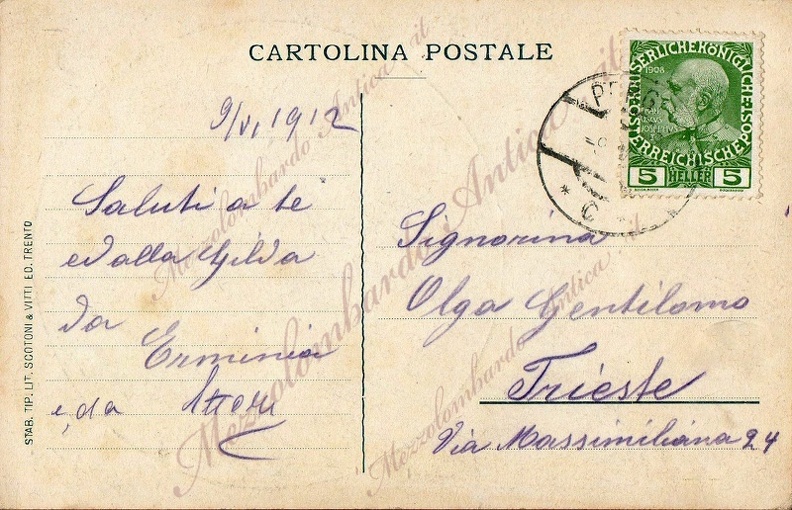 CARTOLINA POSTALE
9/VI 1912
Saluti a te
ed alla Gilda
da Erminia
e, da
Signorina
Olga Gentilomo
Trieste
Via Massimiliana 24
STAB. TIP. LIT. SCOTONI & VITTI ED. TRENTO
KAISERLICHE KÖNIGLICHE
ÖSTERREICHISCHE POST
1908
5 HELLER 5
Mezzolombardo Antica .it
Mezzolombardo Antica .it
Mezzolombardo Antica .it